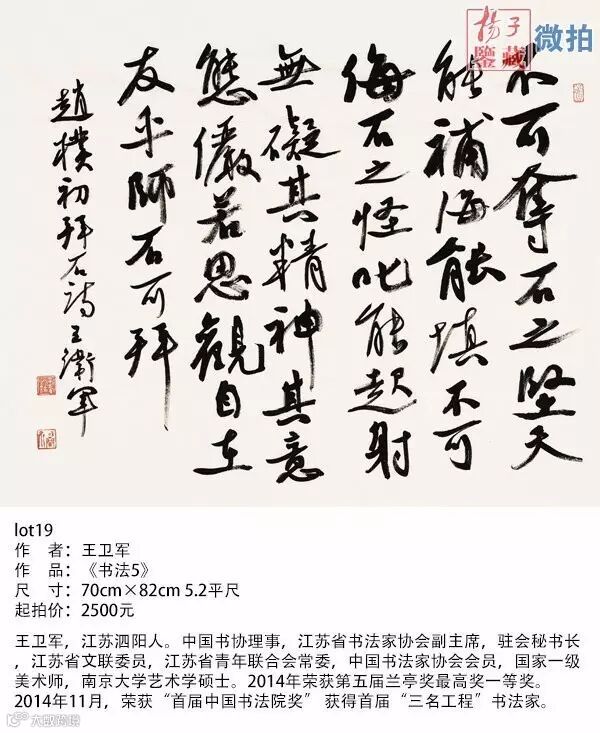 揚子
鑒藏
微拍
不可奪石之堅天
能補海能填不可
侮石之怪叱能起射
無礙其精神其意
態儼若思觀自在
友乎師石可拜
趙樸初拜石詩王衛軍
lot19
作 者：王卫军
作 品：《书法5》
尺 寸：70cm×82cm 5.2平尺
起拍价：2500元
王卫军，江苏泗阳人。中国书协理事，江苏省书法家协会副主席，驻会秘书长
，江苏省文联委员，江苏省青年联合会常委，中国书法家协会会员，国家一级
美术师，南京大学艺术学硕士。2014年荣获第五届兰亭奖最高奖一等奖。
2014年11月，荣获“首届中国书法院奖” 获得首届“三名工程”书法家。
大数跨境